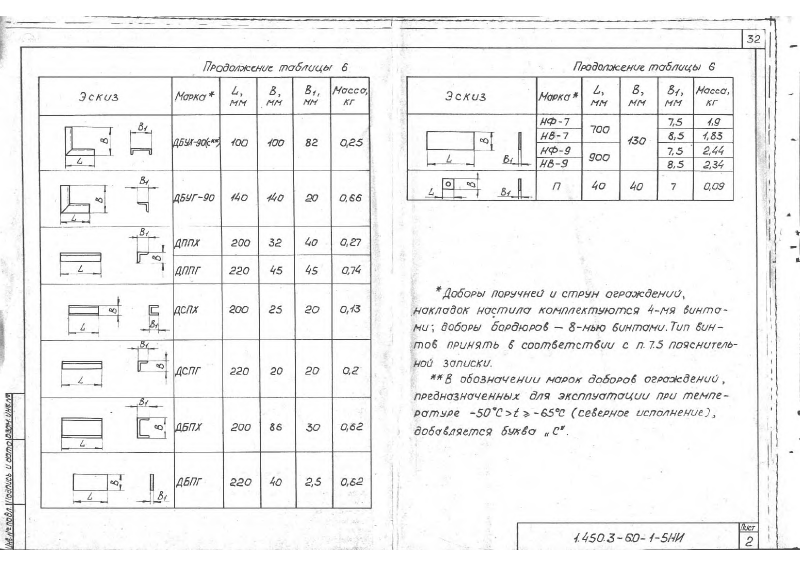 32
Продолжение таблицы 6
Эскиз Марка* L, мм B, мм B1, мм Масса, кг
B1 B L ДБУХ-90(с**) 100 100 82 0,25
B1 B L ДБУГ-90 140 140 20 0,66
B1 B L ДППХ 200 32 40 0,27
ДППГ 220 45 45 0,74
L B B1 ДСПХ 200 25 20 0,13
B1 B L ДСПГ 220 20 20 0,2
B1 B L ДБПХ 200 86 30 0,62
L B B1 ДБПГ 220 40 2,5 0,62
Продолжение таблицы 6
Эскиз Марка* L, мм B, мм B1, мм Масса, кг
L B B1 НФ-7 700 130 7,5 1,9
НВ-7 8,5 1,83
НФ-9 900 7,5 2,44
НВ-9 8,5 2,34
L B B1 П 40 40 7 0,09
* Доборы поручней и струн ограждений,
накладок настила комплектуются 4-мя винта-
ми; доборы бордюров – 8-мью винтами. Тип вин-
тов принять в соответствии с п. 7.5 пояснитель-
ной записки.
** В обозначении марок доборов ограждений,
предназначенных для эксплуатации при темпе-
ратуре -50°С > t ≥ -65°С (северное исполнение),
добавляется буква „С".
1.450.3-6.0-1-5НИ
Лист
2
Инв.№ подл. Подпись и дата Взам.инв.№